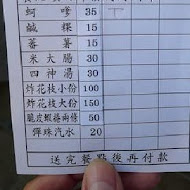 蚵嗲 35
鹹粿 15
蕃薯 15
米大腸 30
四神湯 30
炸花枝小份 100
炸花枝大份 150
脆皮蝦捲兩條 50
彈珠汽水 20
送完餐點後再付款